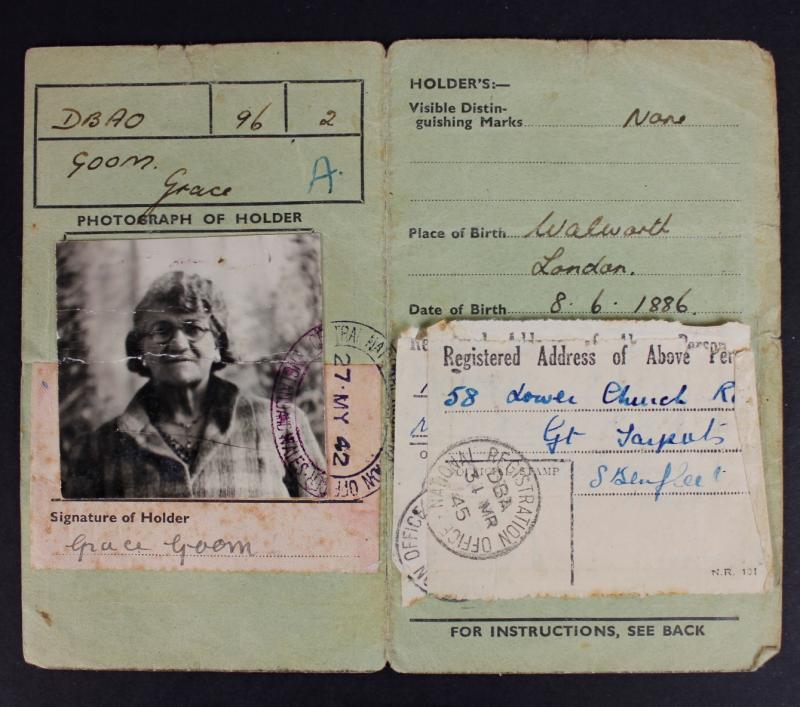 DBAO 96 2
Goom.
Grace A.
PHOTOGRAPH OF HOLDER
27·MY 42
Signature of Holder
Grace Goom
HOLDER'S:—
Visible Distin-
guishing Marks None
Place of Birth Walworth
London.
Date of Birth 8. 6. 1886.
Registered Address of Above Per
58 Lower Church R
Gt Tarpots
S Benfleet
NATIONAL REGISTRATION OFFICE
DBA
31 MR
45
STAMP
N.R. 101
FOR INSTRUCTIONS, SEE BACK